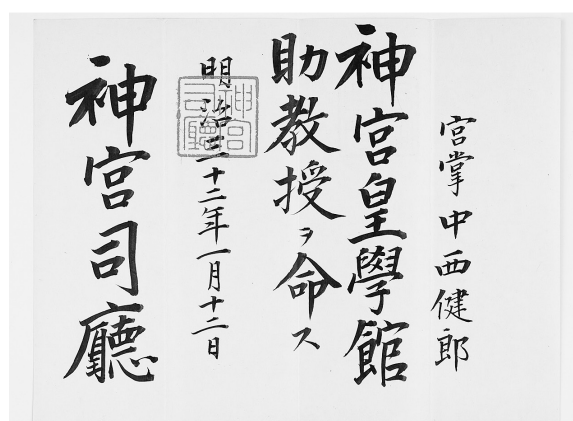 宮掌中西健郎
神宮皇學館
助教授ヲ命ス
明治三十二年一月十二日
神宮司廳
神宮司廳